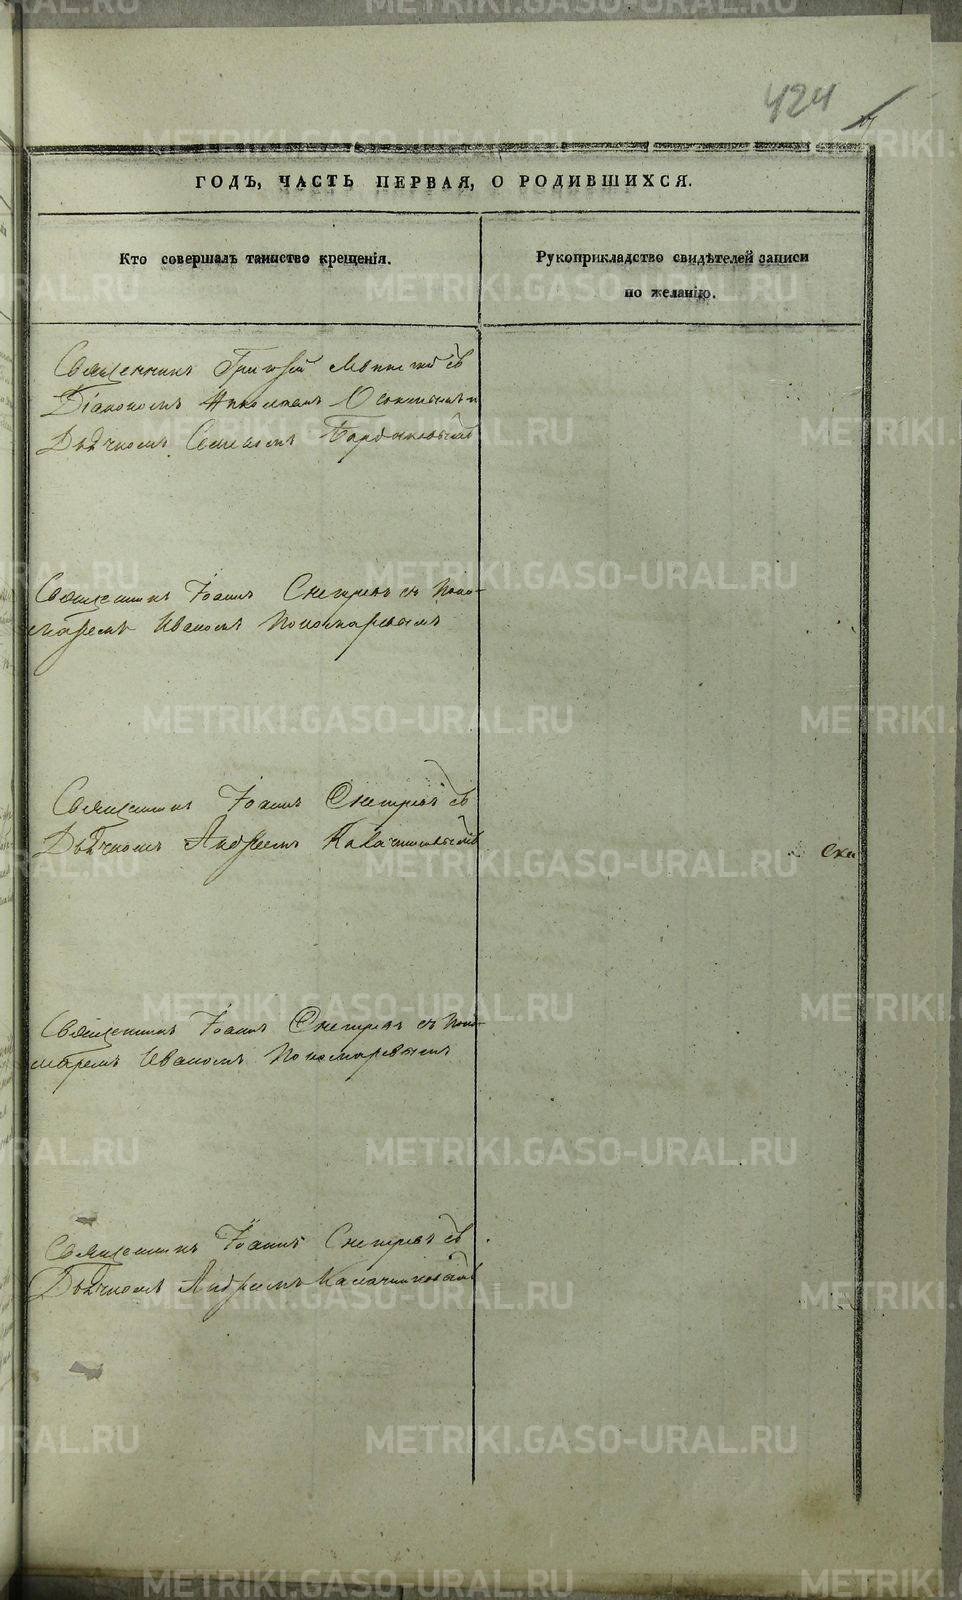 424
ГОДЪ, ЧАСТЬ ПЕРВАЯ, О РОДИВШИХСЯ.
Кто совершалъ таинство крещенія.
Рукоприкладство свидѣтелей записи
по желанію.
Священникъ Григорій съ
Діакономъ Николаемъ и
Дьячкомъ
Священникъ Іоаннъ Снегиревъ съ Поно-
маремъ Иваномъ Пономаревымъ
Священникъ Іоаннъ Снегиревъ съ
Дьячкомъ Андреемъ Калачниковымъ
Священникъ Іоаннъ Снегиревъ съ Поно-
маремъ Иваномъ Пономаревымъ
Священникъ Іоаннъ Снегиревъ съ
Дьячкомъ Андреемъ Калачниковымъ
METRIKI.GASO-URAL.RU